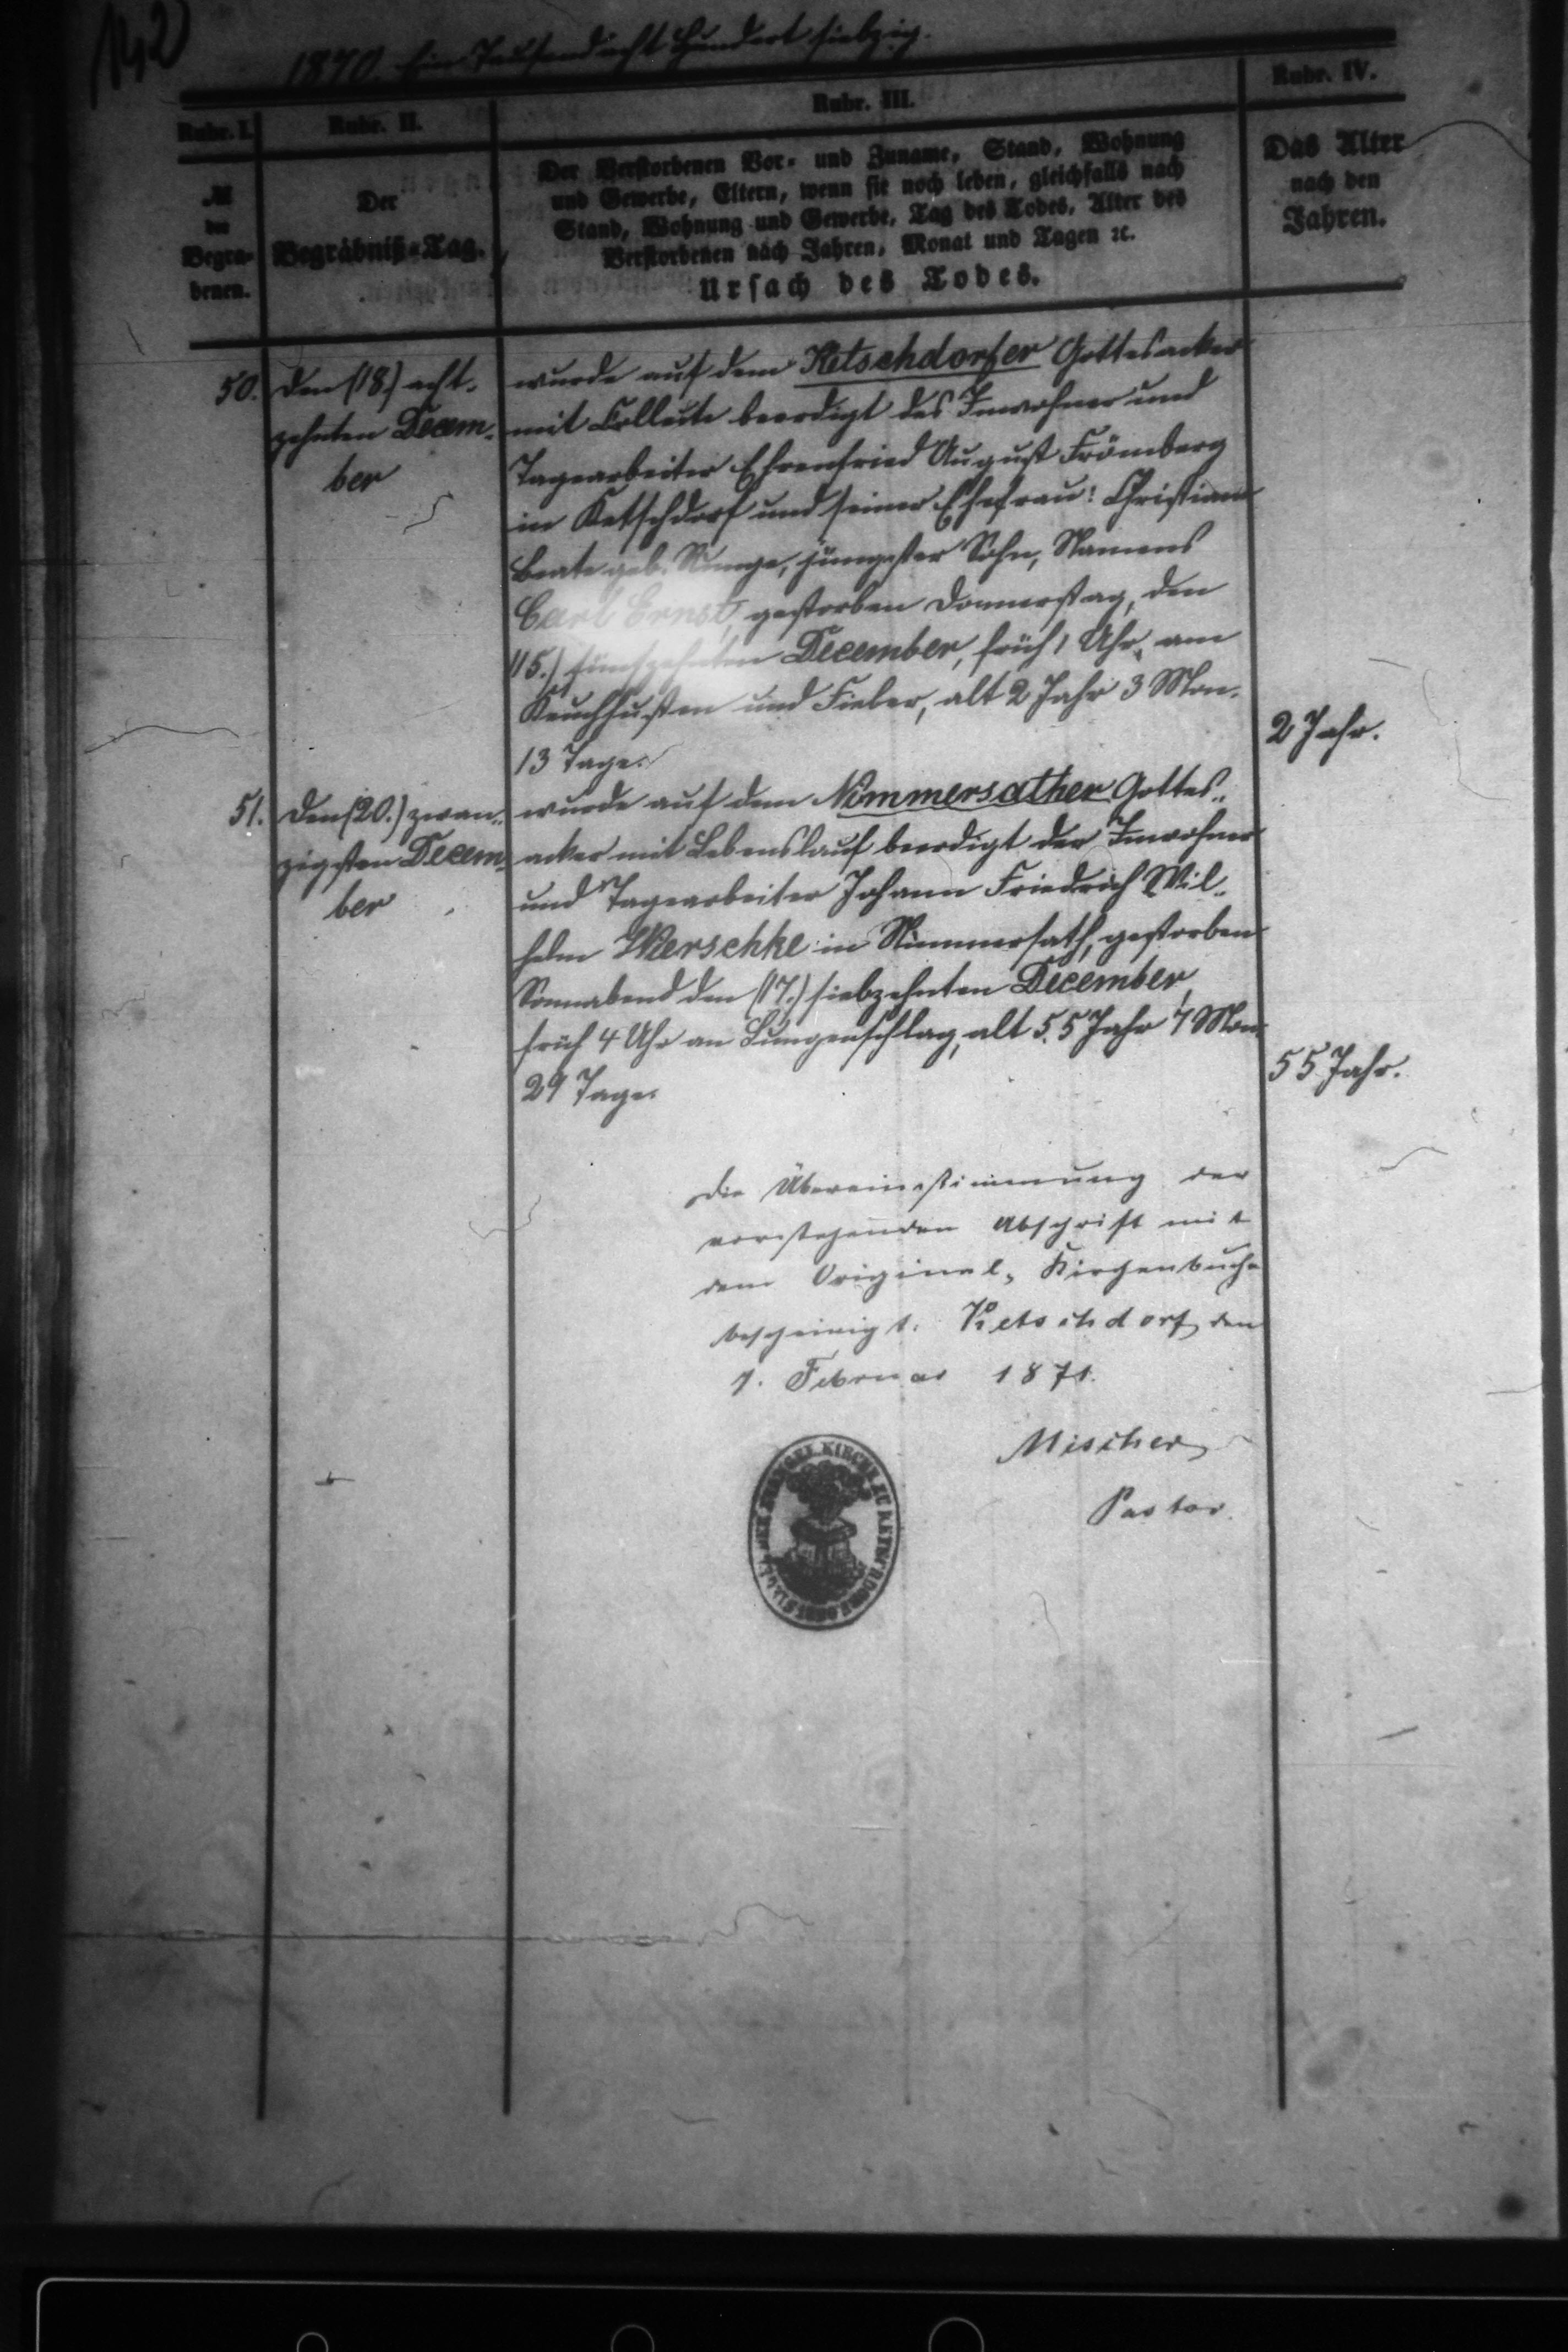 142
1870. Ein Tausend acht Hundert siebzig.
Rubr. I.
Rubr. II.
Rubr. III.
Rubr. IV.
№
der
Begra-
benen.
Der
Begräbniß-Tag.
Der Verstorbenen Vor- und Zuname, Stand, Wohnung
und Gewerbe, Eltern, wenn sie noch leben, gleichfalls nach
Stand, Wohnung und Gewerbe, Tag des Todes, Alter des
Verstorbenen nach Jahren, Monat und Tagen ꝛc.
Ursach des Todes.
Das Alter
nach den
Jahren.
50.
den (18.) acht-
zehnten Decem-
ber
wurde auf dem Ketschdorfer Gottesacker
mit Collecte beerdigt des Inwohner und
Tagearbeiter Ehrenfried August Frömberg
in Ketschdorf und seiner Ehefrau: Christiane
Beate geb. Runge, jüngster Sohn, Namens
Carl Ernst, gestorben Donnerstag, den
(15.) fünfzehnten December, früh 1 Uhr, am
Keuchhusten und Fieber, alt 2 Jahr 3 Mon.
13 Tage.
2 Jahr.
51.
den (20.) zwan-
zigsten Decem-
ber
wurde auf dem Nimmersather Gottes-
acker mit Lebenslauf beerdigt der Inwohner
und Tagearbeiter Johann Friedrich Wil-
helm in Nimmersath, gestorben
Sonnabend den (17.) siebzehnten December,
früh 4 Uhr an Lungenschlag, alt 55 Jahr 7 Mon.
29 Tage.
55 Jahr.
Die Übereinstimmung der
vorstehenden Abschrift mit
dem Original-Kirchenbuche
bescheinigt. Ketschdorf, den
1. Februar 1871.
Mischer
Pastor.
KIRCHE ZU